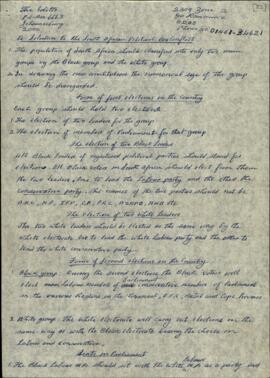 The Editor
P.O. Box 6663
Johannesburg
2000
2204 Zone 2
01463-34621
A Solution to the South African Political Conflict
The population of South Africa should be classified into only two main
groups eg the Black group and the white group.
2. In drawing the new constitution the numerical size of the group
should be disregarded.
Form of first elections in the Country
Each group should hold two elections.
1. The election of two leaders for the group
2. The election of members of Parliament for that group
The election of two Black leaders
All Black leaders of registered political parties should stand for
elections. All Black voters in South Africa should elect from them
the two leaders, one to lead the Labour party and the other the
conservative party. The names of the two parties should not be
The election of two white leaders
The two white leaders should be elected in the same way by the
white electorate, one to lead the white Labour party and the other to
lead the white conservative party.
Form of second elections in the Country
Black group: During the second elections the Black voters will
elect main Labour Members or conservative members of Parliament
in the various regions in the Transvaal, O.F.S., Natal and Cape Province
White group: The white electorate will carry out elections in the
same way as with the Black electorate having the choice on
Labour and conservative.
Seats in Parliament
1. The Black Labour M.P. should sit with the white Labour M.P. as a party and